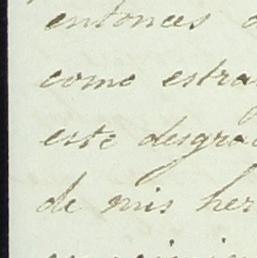 entonces
como estra
este desgra
de mis her